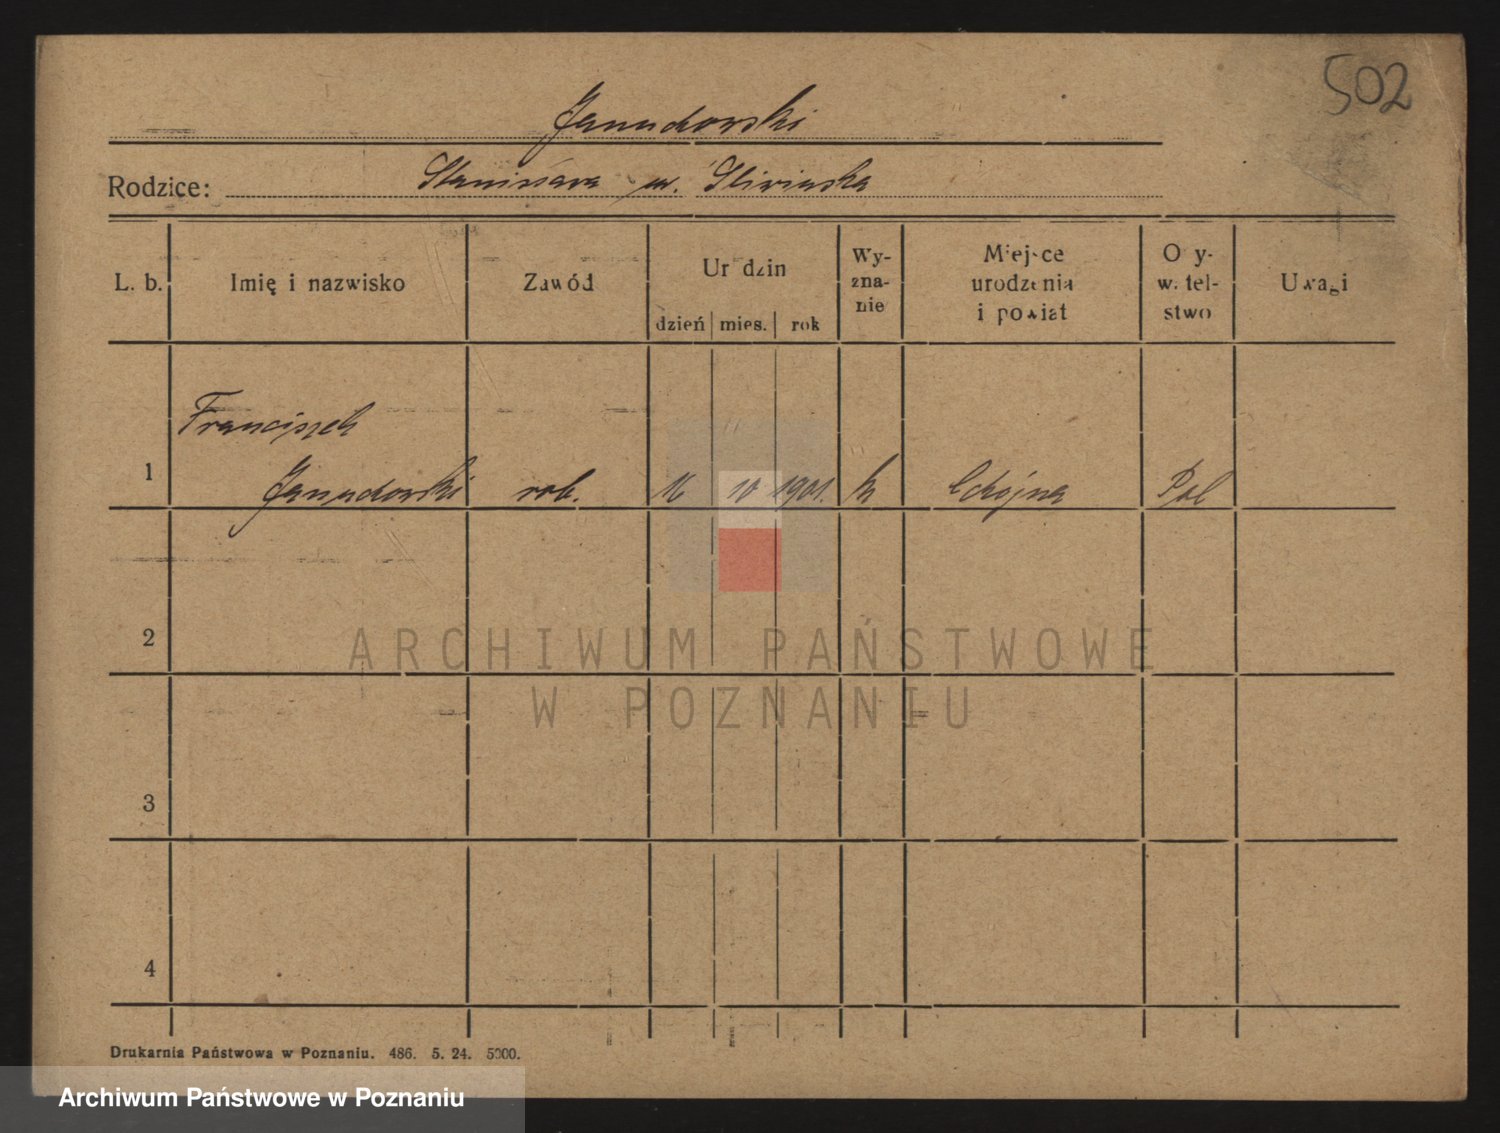 502
Janudowski
Rodzice: Stanisława
L. b. Imię i nazwisko Zawód Ur dzin Wy- Miejsce O y- Uwagi
zna- urodzenia w. tel-
nie i powiat stwo
dzień mies. rok
Franciszek
1 Janudowski rob. 16 10 1901. k Chojna Pol
2
3
4
ARCHIWUM PAŃSTWOWE
W POZNANIU
Drukarnia Państwowa w Poznaniu. 486. 5. 24. 5000.
Archiwum Państwowe w Poznaniu